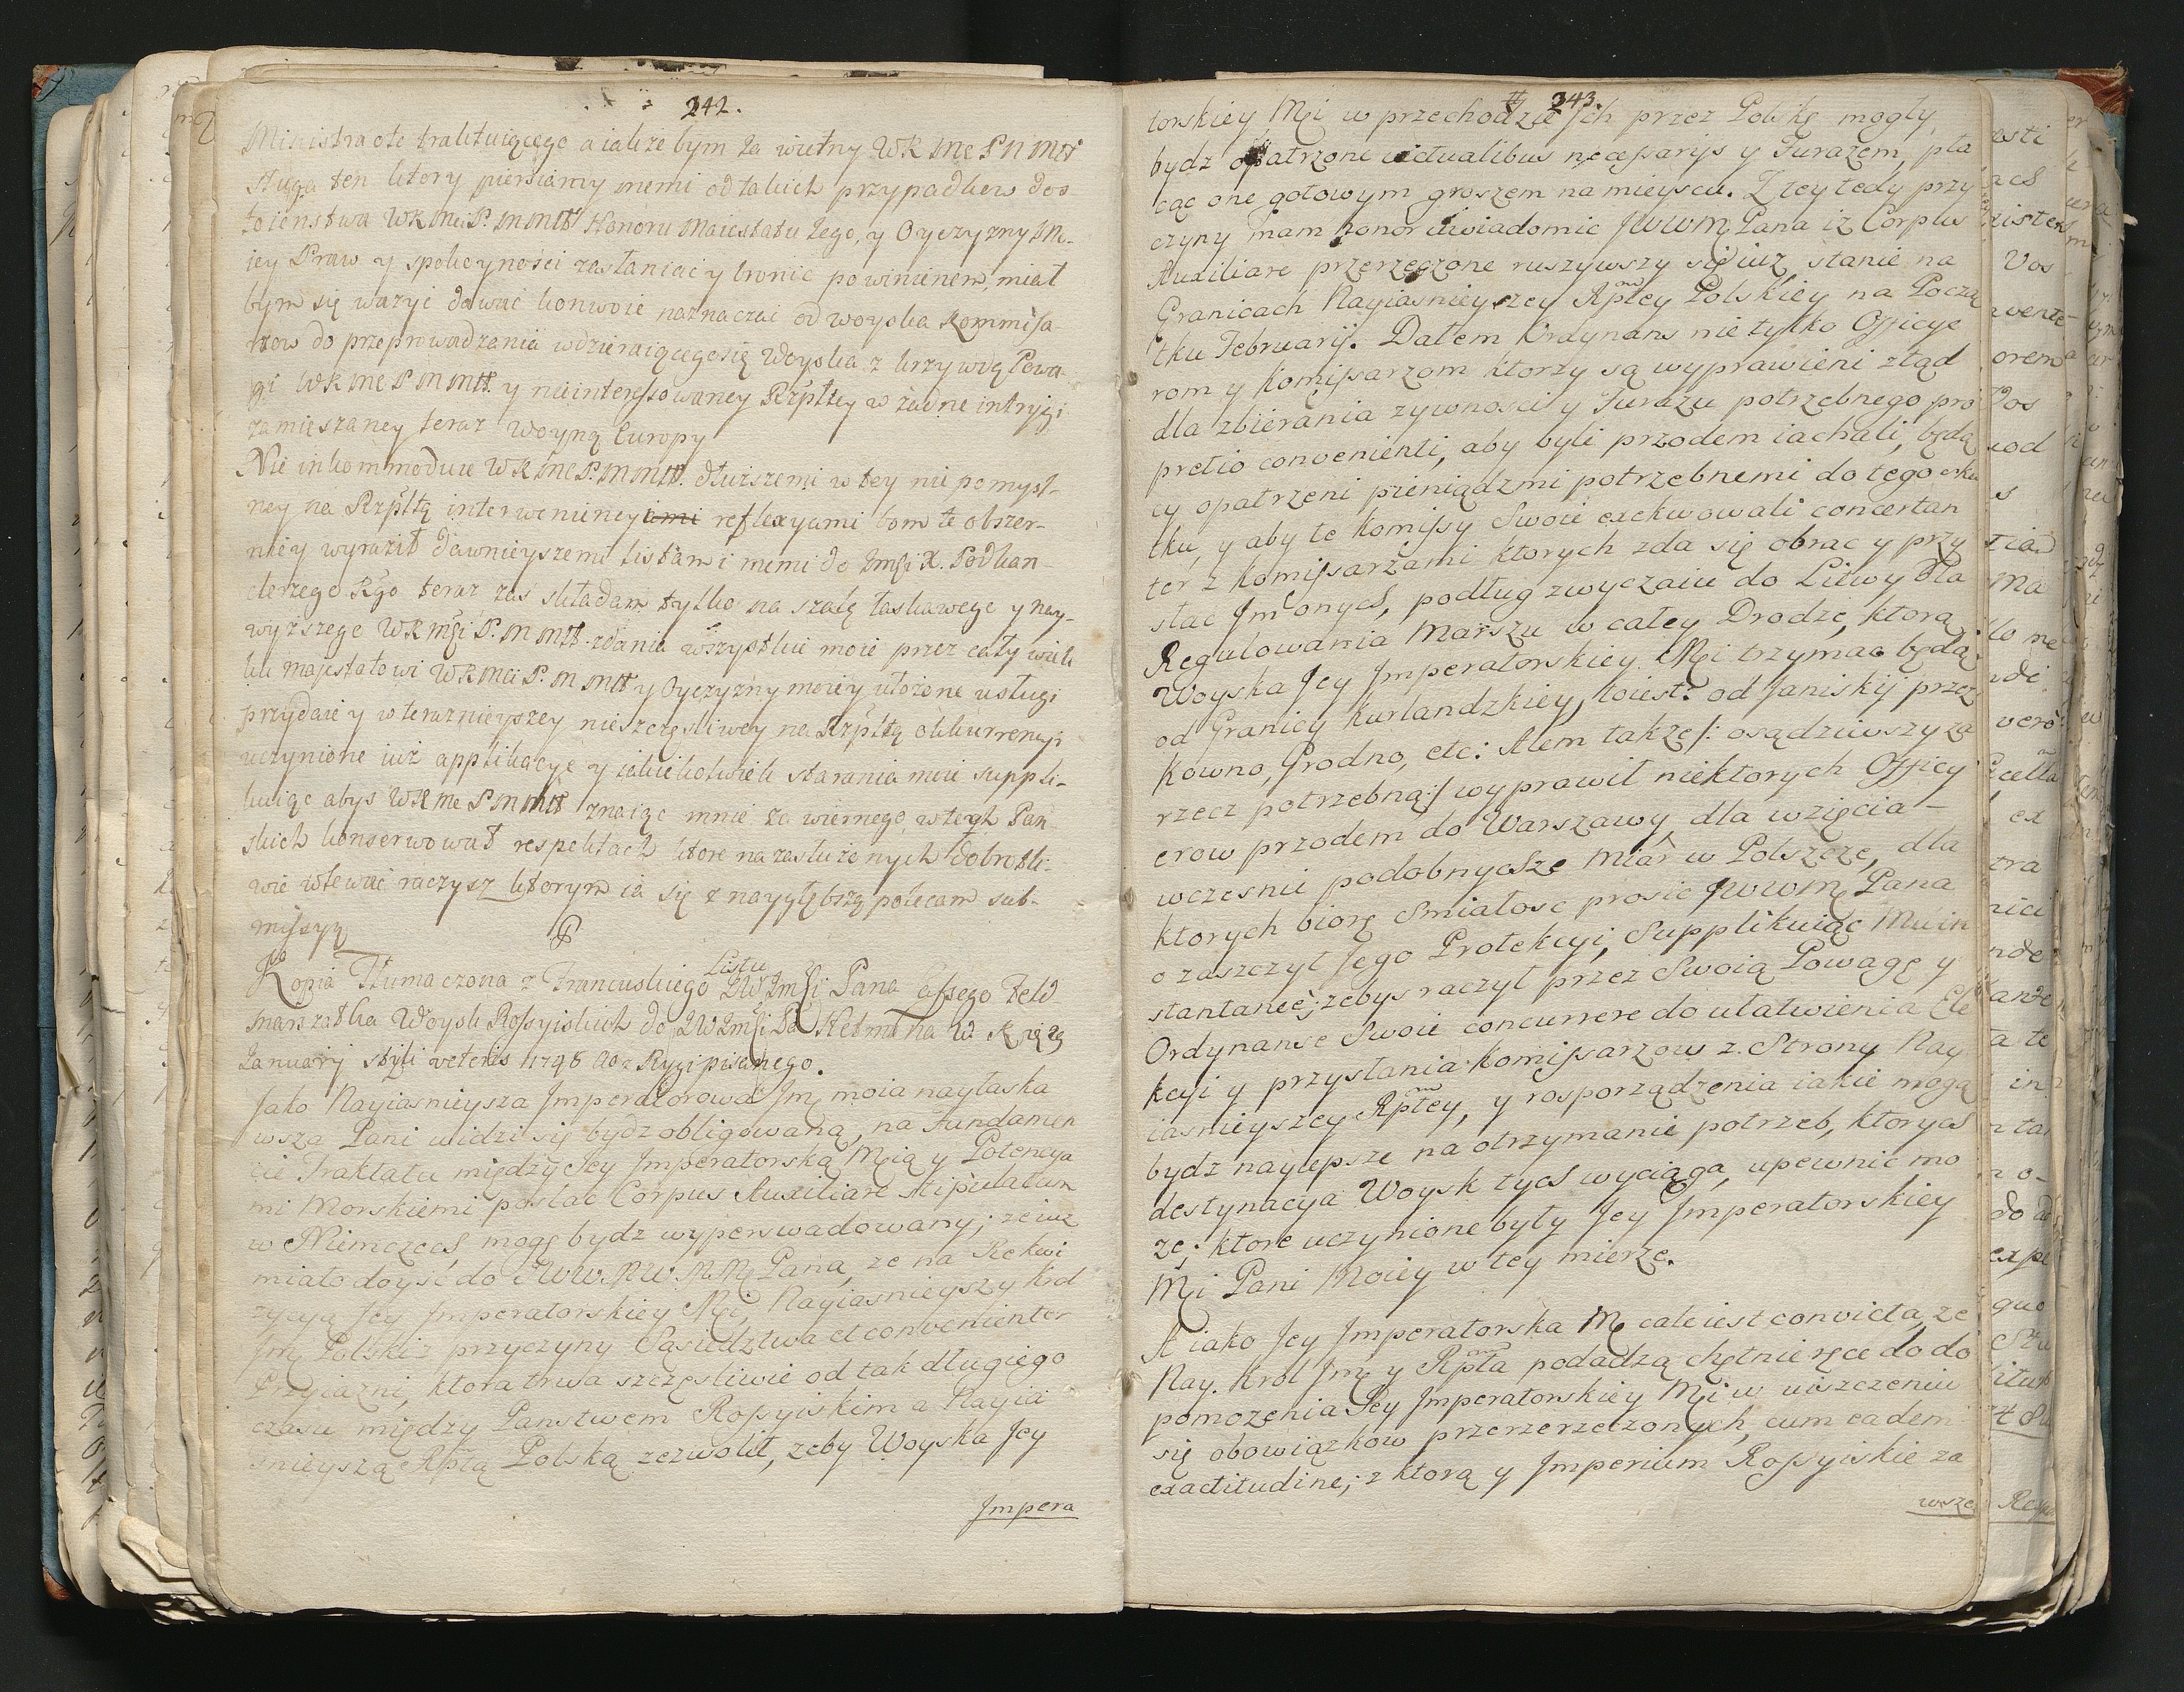 242.
Ministra ole traktuiącego a iakże bym ia wierny WK Me P N Mtt
sługa ten ktory piersiamy memi od takich przypadkow dos
toienstwa WK Mci P. M Mtt Honoru Maiestatu Jego, y Oyczyzny Mo-
iey Praw y spokoyności zasłaniać y bronić powinienem, miał
bym się ważyć dawać konwoie naznaczać od woyska Kommissa
rzow do przeprowadzenia wdzieraiącego się Woyska z krzywdą Powa-
gi WK Me P M Mtt y nieinteressowaney Rzpltey w żadne intrygi
zamieszaney teraz woyną Europy
Nie inkommoduie WK Me P. M Mtt. dłuższemi w tey nie pomysl-
ney na Rzpltą interweniencyi reflexyami bom te obszer-
niey wyraził dawnieyszemi listami memi do Jmsi X. Podkan-
clerzego Kgo teraz zas składam tylko na szalę łaskawego y nay-
wyższego WK Msi P. M Mtt. zdania wszystkie moie przez cały wiek
ku majestatowi WK Mci P. M Mtt y Oyczyzny moiey ułożone usługi
przydaie y w teraznieyszey nieszczęsliwey na Rzpltą okkurrencyi
uczynione już applikacye y iakiekolwiek starania moie suppli-
kuiąc abys WK Me P M Mtt znaiąc mnie za wiernego w tych Pan
skich konserwował respektach ktore na zasłużonych dobrotli-
wie wlewać raczysz ktorym ia się z nayygłębszą polecam sub-
missyą
Kopia Tłumaczona z Francuskiego Listu JW Jmsi Pana Lassego Feld-
marszałka Woysk Rossyiskich do JW Jmsi Pa Hetmana W
January styli veteris 1748 a z Rygi pisanego.
Jako Nayiasnieysza Jmperatorowa Jm moia nayłaska
wsza Pani widzi się bydz obligowaną, na Fundamen
cie Traktatu między Jey Jmperatorską Mcią y Potencya
mi Morskiemi posłac Corpus Auxiliare stipulatum
w Niemczech, mogę bydz wyperswadowany; że iuz
miało doyść do JWWMM Pana, ze na Rekwi
zycyą Jey Jmperatorskiey Mci, Nayiasnieyszy Krol
Jmc Polski z przyczyny Sąsiedztwa et convenienter
Przyiazni, ktora trwa szczęsliwie od tak długiego
czasu między Panstwem Rossyiskim a Nayia
snieyszą Rptą Polską zezwolił, zeby Woyska Jey
Jmpera
343.
torskiey Mci w przechodzie Jch przez Polskę mogły
bydz opatrzone victualibus necessarijs y Furazem, pła
cąc one gotowym groszem na mieyscu. Z tey tedy przy
czyny mam honor uwiadomic JWWM Pana iz Corpus
Auxiliare przerzeczone ruszywszy się iuz stanie na
Granicach Nayiasnieyszey Rptey Polskiey na Począ
tku Februarij. Dałem Ordynans nie tylko Officye
rom y Komissarzom ktorzy są wyprawieni ztąd
dla zbierania zywnosci y Furazu potrzebnego pro
pretio convenienti, aby byli przodem iachali, będą
cy opatrzeni pieniądzmi potrzebnemi do tego sku
tku, y aby te Komissy Swoie exekwowali concertan
ter z Komissarzami ktorych zda się obrac y przy
słac Jm onych, podług zwyczaiu do Litwy dla
Regulowania Marszu w całey Drodze, ktorą
Woyska Jey Jmperatorskiey Mci trzymac będą
od Granicy Kurlandzkiey, toiest: od Janiskij przez
Kowno, Grodno, etc: Alem takze /: osądziwszy za
rzecz potrzebną:/ wyprawił niektorych Officy
erow przodem do Warszawy, dla wzięcia -
wczesnie podobnychze Miar w Polszcze, dla
ktorych biorę Smiałosc prosic JWWM Pana
o zaszczyt Jego Protekcyi, Supplikuiąc Mu in
stantaneè; zebys raczył przez Swoią Powagę y
Ordynanse Swoie concurrere do ułatwienia Ele
kcyi y przysłania Komissarzow z Strony Nay
iasnieyszey Rptey, y rosporządzenia iakie mogą
bydz naylepsze na otrzymanie potrzeb, ktorych
destynacya Woysk tych wyciąga, upewnic mo
ze; ktore uczynione były Jey Jmperatorskiey
Mci Pani Moiey w tey mierze.
A iako Jey Jmperatorska Mc cale iest convicta, ze
Nay. Krol Jmc y Rpta podadzą chętnie ręce do do
pomozenia Jey Jmperatorskiey Mci w uiszczeniu
się obowiązkow przerzerzeczonych, cum eadem
exactitudine; z ktorą y Jmperium Rossyiskie za
wsze